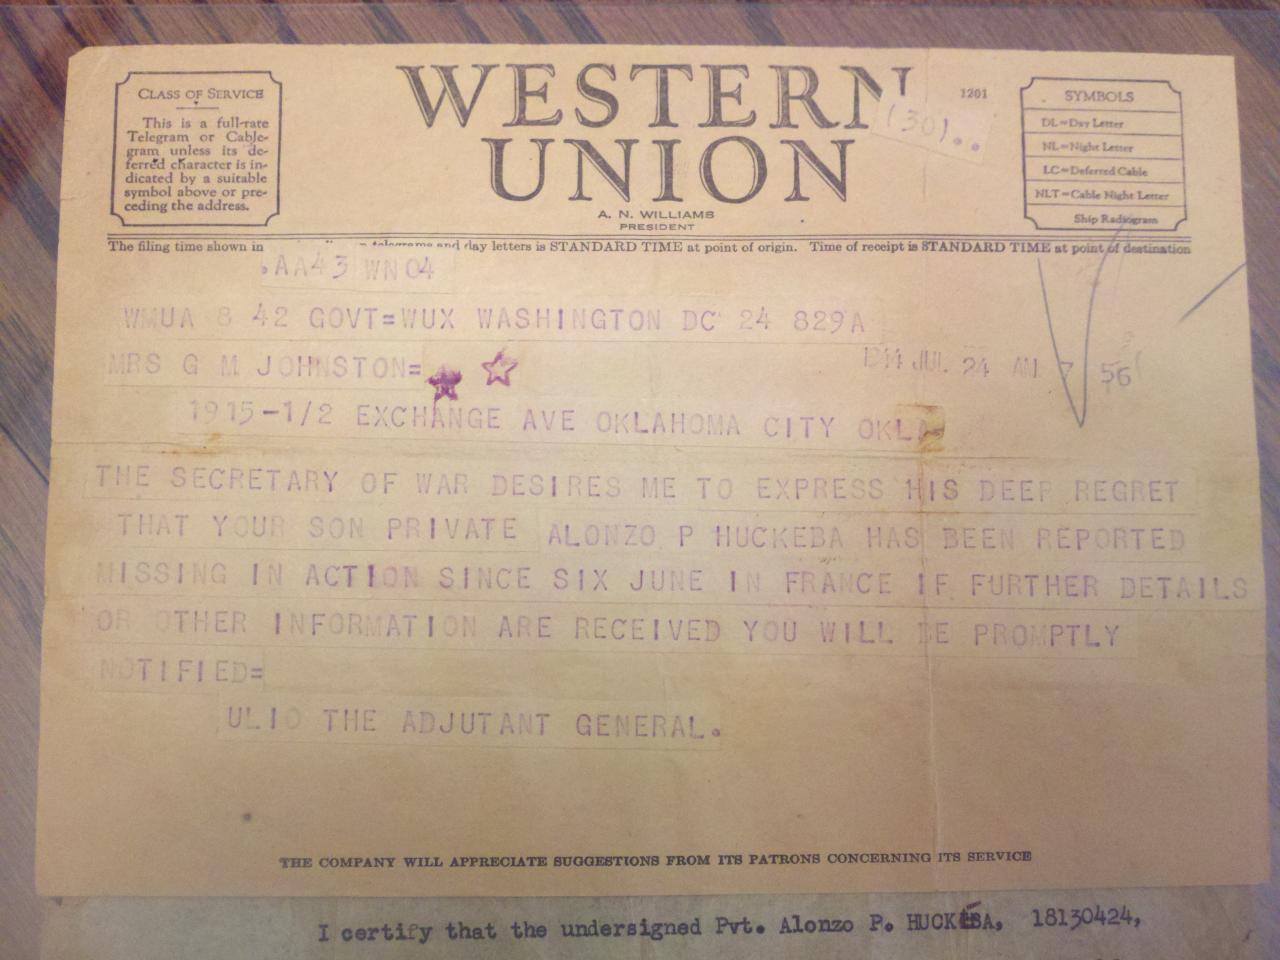 CLASS OF SERVICE
This is a full-rate
Telegram or Cable-
gram unless its de-
ferred character is in-
dicated by a suitable
symbol above or pre-
ceding the address.
WESTERN
UNION
(30)..
1201
A. N. WILLIAMS
PRESIDENT
SYMBOLS
DL=Day Letter
NL=Night Letter
LC=Deferred Cable
NLT=Cable Night Letter
Ship Radiogram
The filing time shown in telegrams and day letters is STANDARD TIME at point of origin. Time of receipt is STANDARD TIME at point of destination
.AA43 WN04
WMUA 8 42 GOVT=WUX WASHINGTON DC 24 829A
MRS G M JOHNSTON=
1944 JUL 24 AM 7 56
1915-1/2 EXCHANGE AVE OKLAHOMA CITY OKLA
THE SECRETARY OF WAR DESIRES ME TO EXPRESS HIS DEEP REGRET
THAT YOUR SON PRIVATE ALONZO P HUCKEBA HAS BEEN REPORTED
MISSING IN ACTION SINCE SIX JUNE IN FRANCE IF FURTHER DETAILS
OR OTHER INFORMATION ARE RECEIVED YOU WILL BE PROMPTLY
NOTIFIED=
ULIO THE ADJUTANT GENERAL.
THE COMPANY WILL APPRECIATE SUGGESTIONS FROM ITS PATRONS CONCERNING ITS SERVICE
I certify that the undersigned Pvt. Alonzo P. HUCKEBA, 18130424,